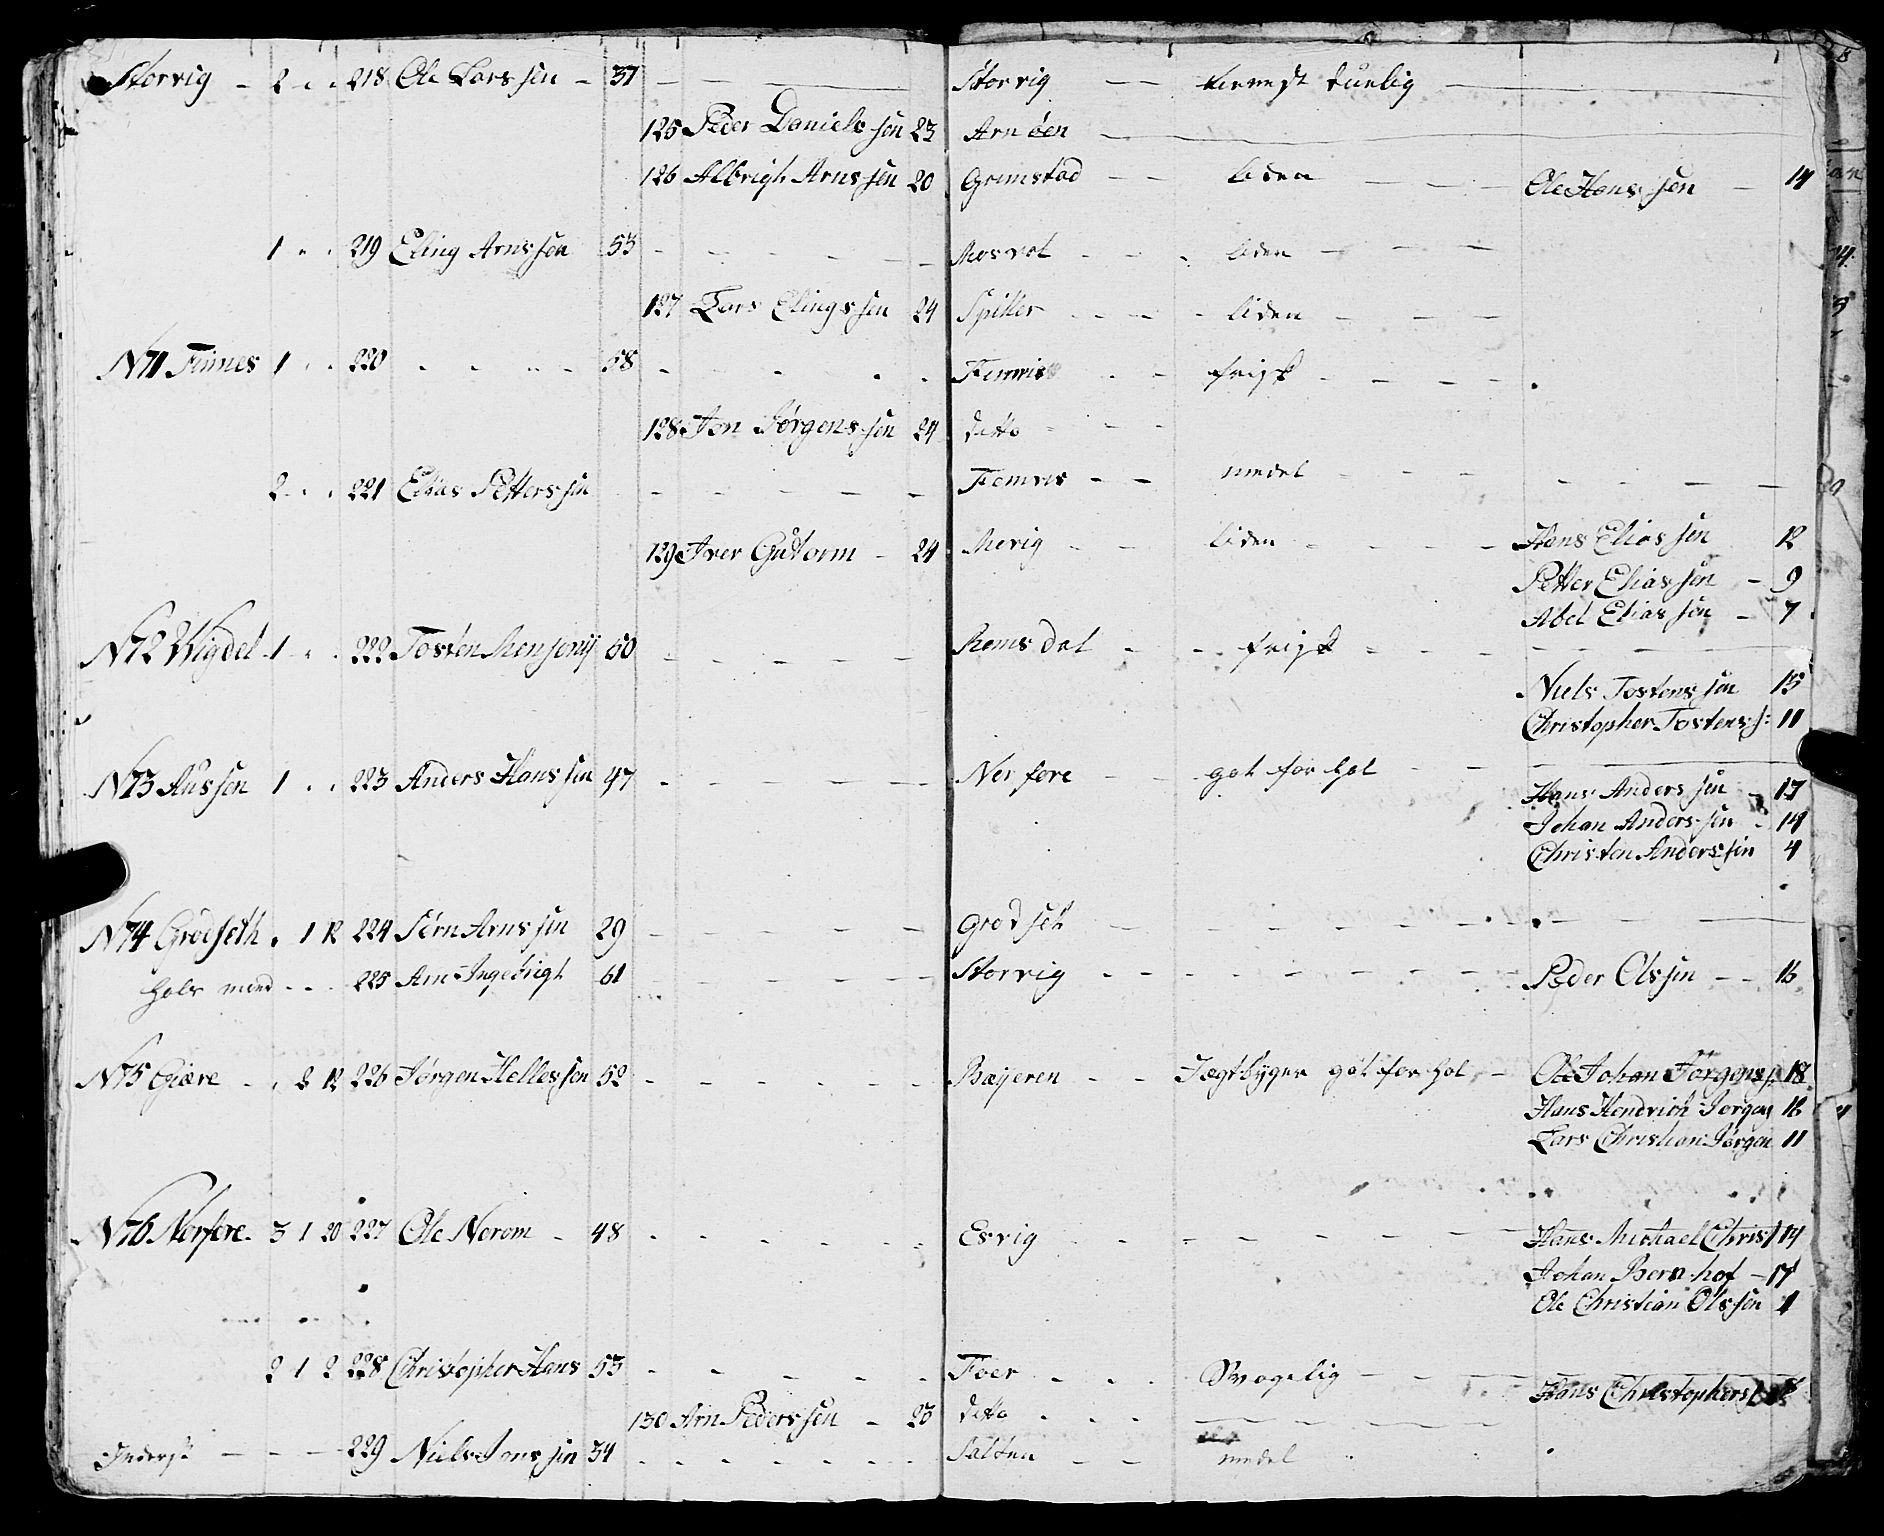 Storvig - 2 218 Ole Larssen - 37 Storvig tienest tuelig
125 Peder Danielssen 23 Arnöen
126 Albrigt Arnssen 20 Grimstad liden Ole Hanssen 14
1 219 Eling Arnssen 53 Mosvol liden
127 Lars Elingssen 24 Spiller liden
N 71 Finnes 1 220 58 frisk
128 Jon Jörgenssen 24 ditto
2 221 Elias Petterssen medel
129 Iver Gutorm - 24 Mevig liden Hans Eliassen 12
Petter Eliassen - 9
Abel Eliassen - 7
N 72 Wigdel 1 222 Tosten 60 Romsdal frisk
Niels Tostenssen 15
Christopher Tostens s: 11
N 73 Aussen 1 223 Anders Hanssen 47 Nerfore got for hol
Hans Anderssen - 17
Johan Anderssen - 14
Christen Anderssen 4
N 74 Grodseth 1 12 224 Sörn Arnssen 29 Grodset
Hols mand 225 Arn Ingebrigt 61 Storvig Peder Olssen 16
N 75 Giære 2 12 226 Jörgen Hellessen 52 Bæyeren Jægtbyger got for hol Ole Johan Jörgens s: 18
Hans Hendrich Jörgens 16
Lars Christian Jörgen 11
N 76 Nerfore 3 1 20 227 Ole Nerom - 48 Esvig Hans Michael Christ 14
Johan Bernhof - 17
Ole Christian Olssen 1
2 1 2 228 Christopher Hans 53 Foer Svagelig Hans Christophers
130 Arn Pederssen - 23 ditto
Inderst 229 Niels Jonssen 34 Salten medel